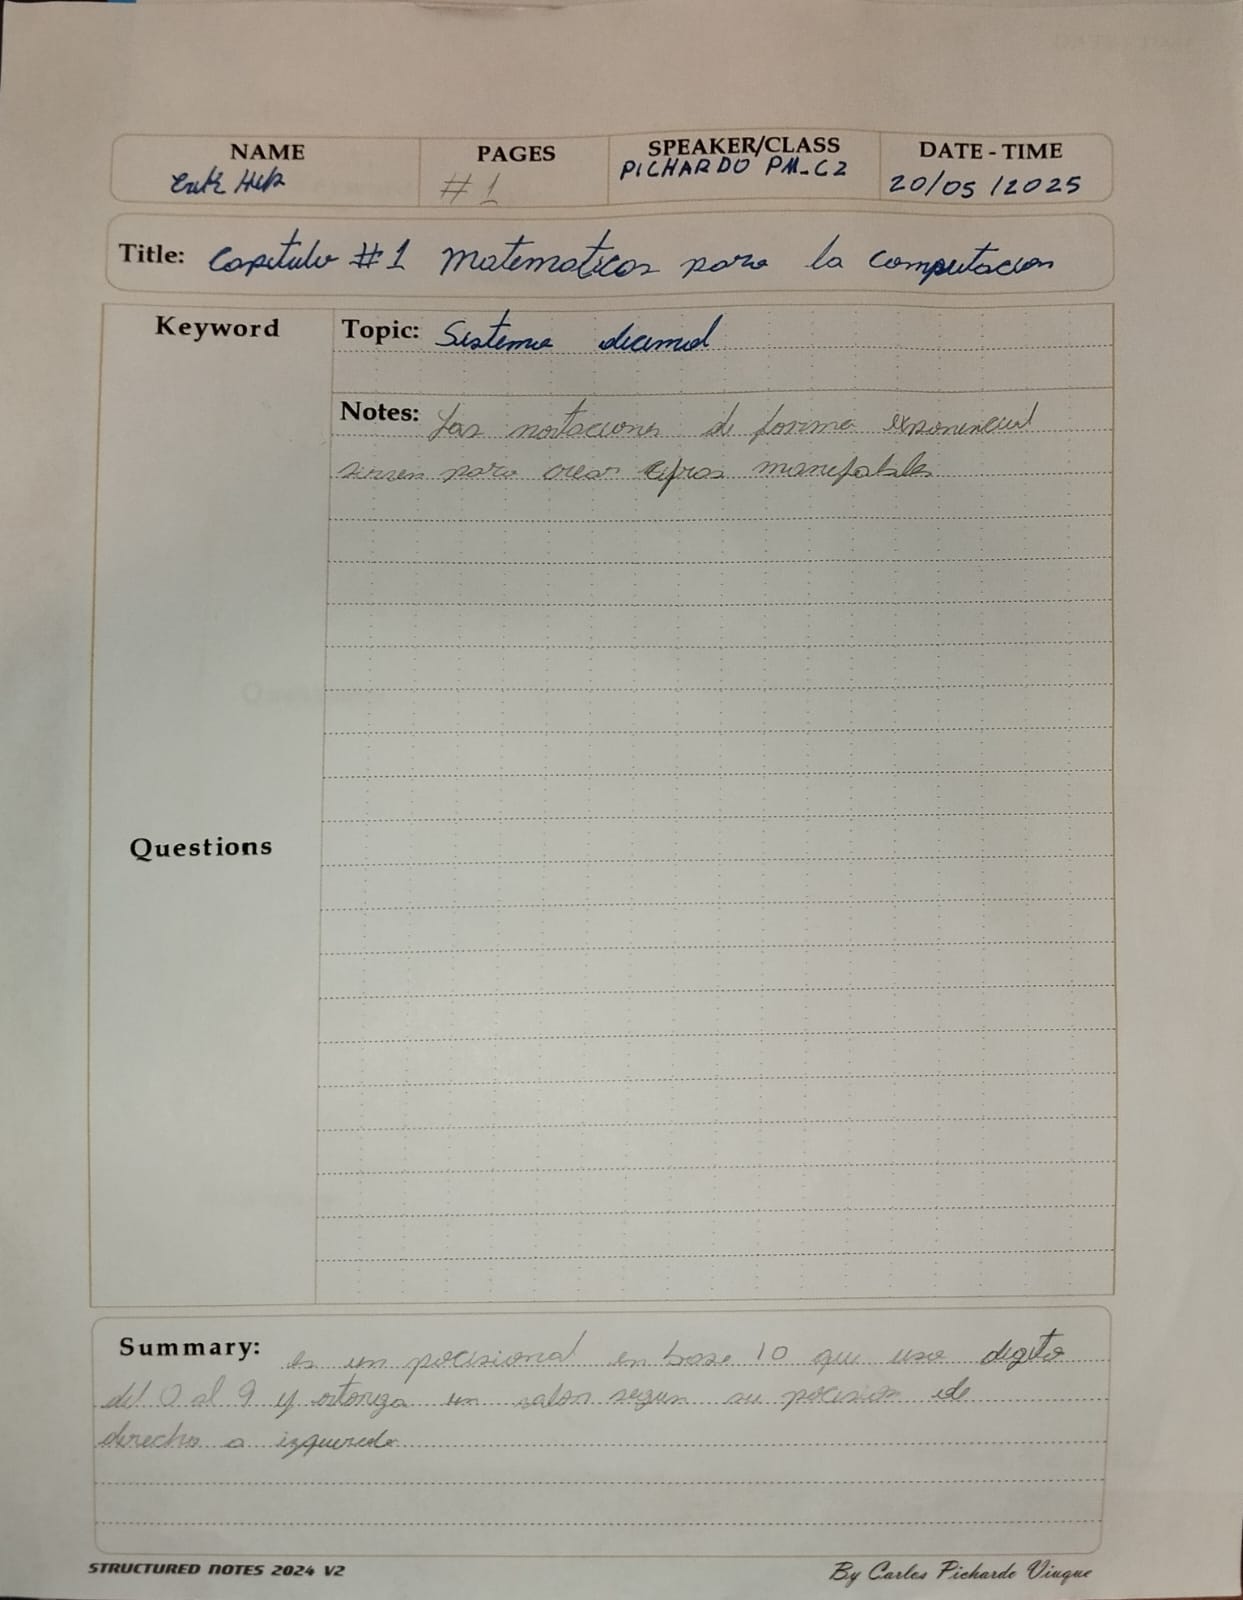 NAME PAGES SPEAKER/CLASS DATE - TIME
#1 PICHARDO PM-C2 20/05/2025
Title: Capitulo #1 Matematicas para la computacion
Keyword
Topic: Sistema decimal
Notes: Las notaciones de forma exponencial
sirven para crear cifras manejables
Questions
Summary: es un posicional en base 10 que usa digito
del 0 al 9 y otorga un valor segun su posicion de
derecha a izquierda
STRUCTURED NOTES 2024 V2 By Carlos Pichardo Viuque